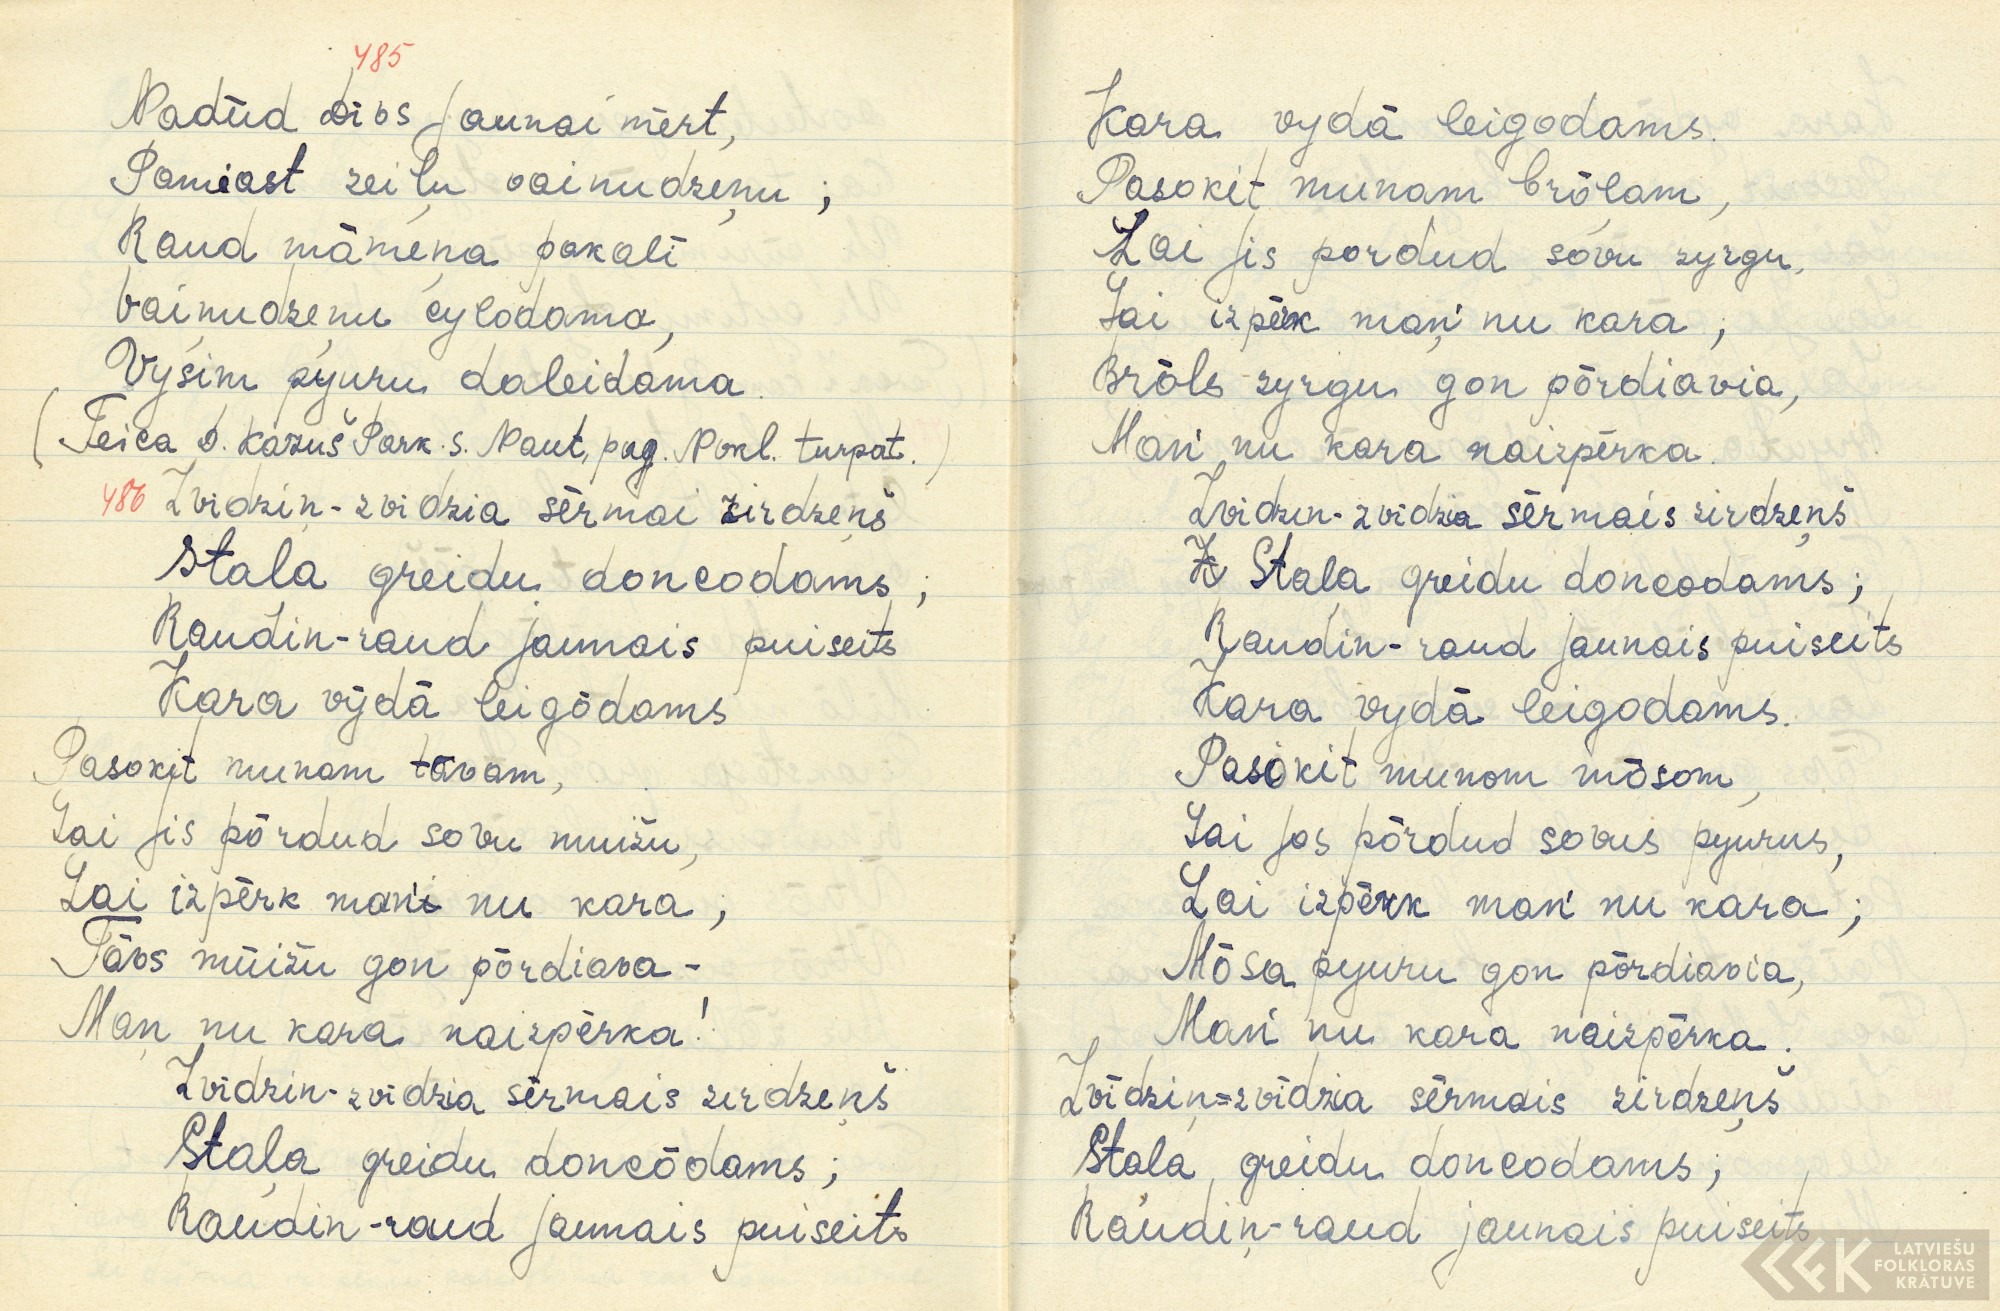 485
Nadūd dīvs jaunai mērt,
Pamiast zeiļu vainudzeņu;
Raud māmeņa pakalī
Vaiņudzeņu cylodama,
Vysim pyuru daleidama.
(Teica D. Kazušs Park. s. Naut. pag. Nokl. turpat.)
486 Zvidziņ-zvidzia sērmai zirdzeņš
Staļa greidu doncodams;
Raudin-raud jaunais puiseits
Kara vȳdā leigōdams
Pasokit munam tāvam,
Lai jis pōrdud sovu muižu,
Lai izpērk mańi nu kara;
Tāvs muižu gon pōrdiava-
Maņ nu kara naizpērka!
Zvīdzin-zvīdzia sērmais zirdzeņš
Staļa greidu doncōdams;
Raudin-raud jaunais puiseits
Kara vydā leigodams.
Pasokit munam brōļam,
Lai jis pordud sovu zyrgu,
Lai izpērk maņ nu kara;
Brōls zyrgu gon pōrdiavia,
Mań nu kara naizpērka.
Zvidzin-zvidzia sērmais zirdzeņš
Staļa greidu doncodams;
Raudin-raud jaunais puiseits
Kara vydā leigodams.
Pasokit munom mōsom,
Lai jos pōrdud sovus pyurus,
Lai izpērk mań nu kara;
Mōsa pyuru gon pōrdiavia,
Mań nu kara naizpērka.
Zvīdziņ=zvīdzia sērmais zirdzeņš
Staļa greidu doncodams;
Raudiņ-raud jaunais puiseits
LATVIEŠU
FOLKLORAS
KRĀTUVE